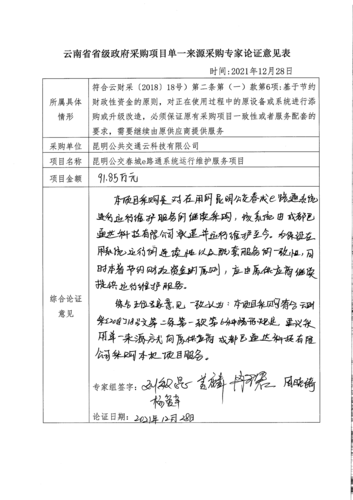 云南省省级政府采购项目单一来源采购专家论证意见表
时间:2021年12月28日
所属具体情形
符合云财采〔2018〕18号）第二条第（一）款第6项:基于节约
财政性资金的原则，对正在使用过程中的原设备或系统进行添
购或升级改造，必须保证原有采购项目一致性或者服务配套的
要求，需要继续由原供应商提供服务
采购单位
昆明公共交通云科技有限公司
项目名称
昆明公交春城e路通系统运行维护服务项目
项目金额
91.85万元
综合论证意见
本项目采购是对在用的昆明公交春城e路通系统
进行运行维护服务的继续采购，该系统由成都
科技有限公司承建并运行维护至今。为保证在
用系统运行的连续性以及配套服务的一致性，同
时本着节约财政资金的原则，应由原供应商继续
提供运行维护服务。
综合五位专家意见，一致认为：本项目采购符合云财
采[2018]18号文第二条第一款第6种情形规定，建议采
用单一来源方式向原供应商成都
公司采购本批项目服务。
专家组签字:
论证日期: 2021年12月28日